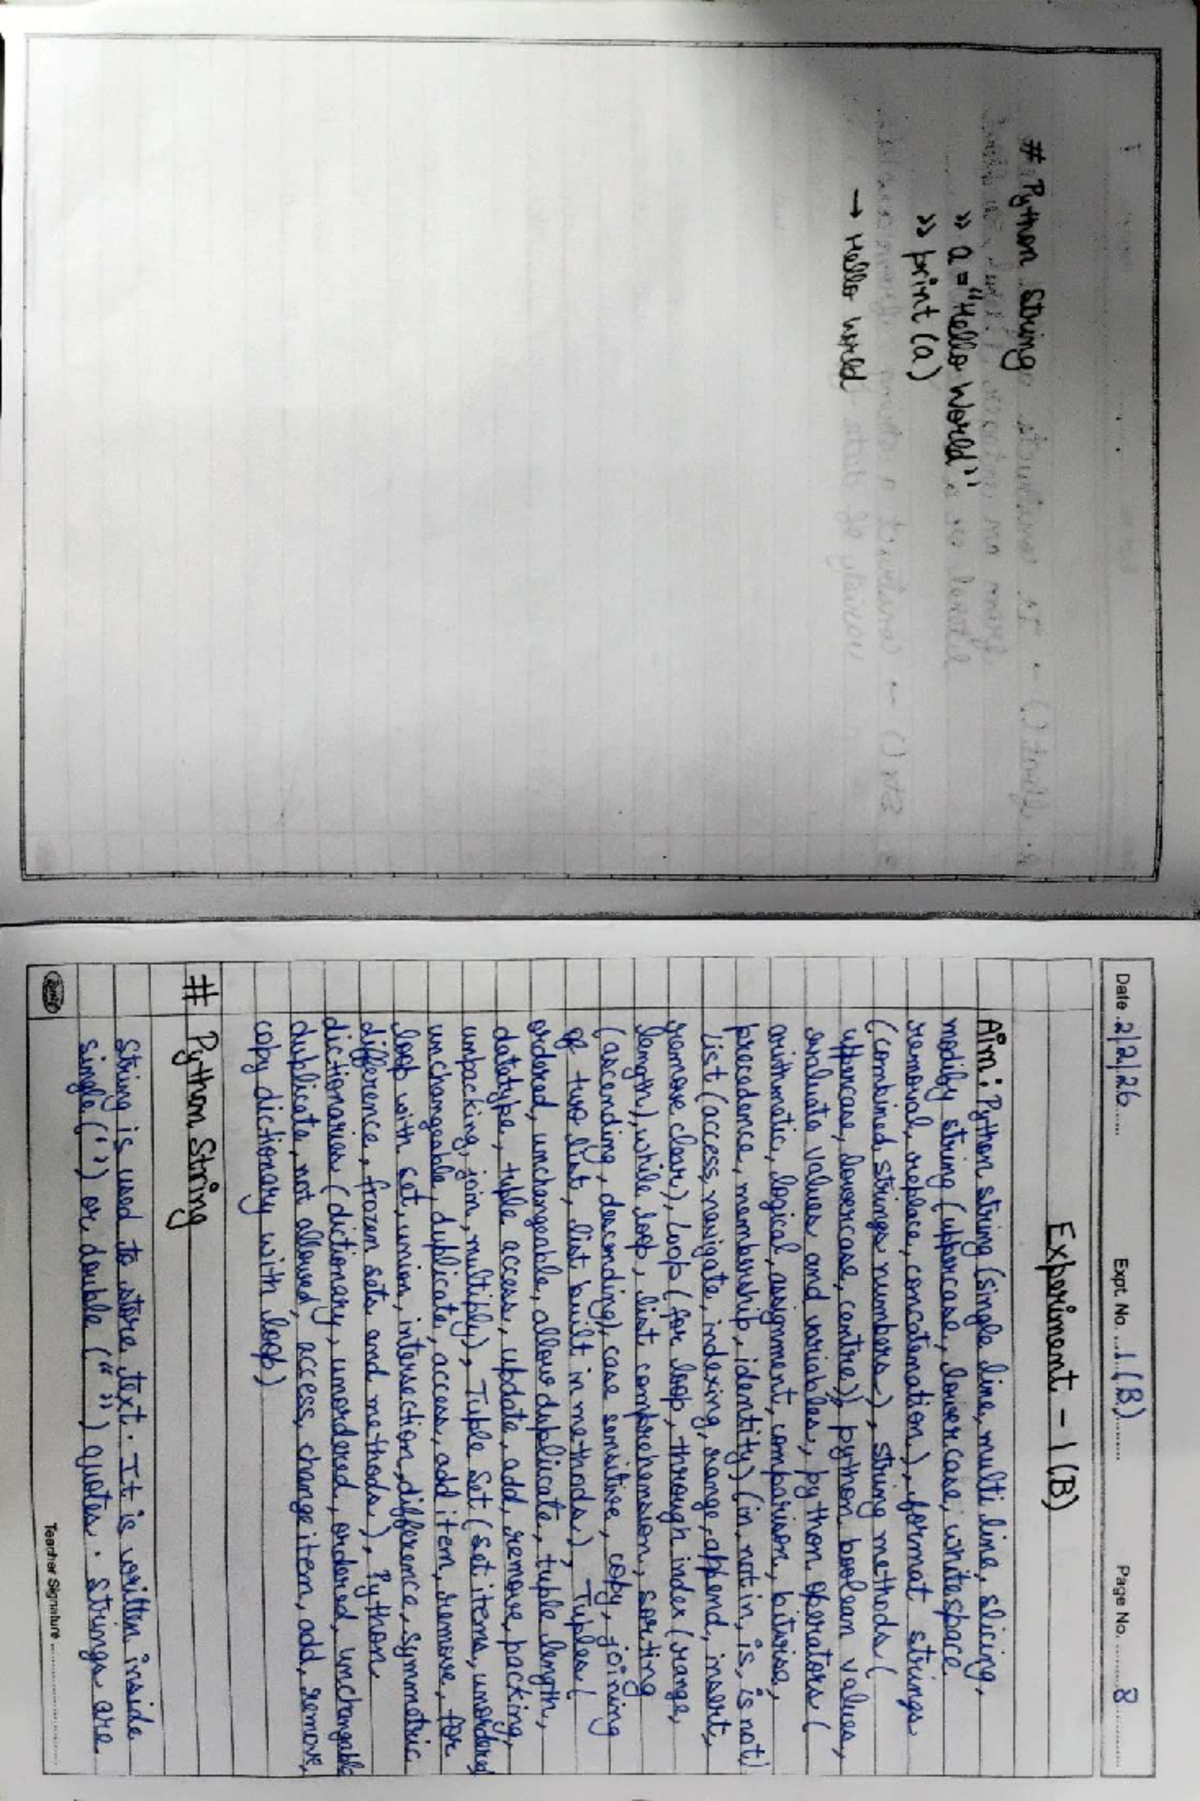 # Python String
» a = "Hello World"
» print (a)
→ Hello World
Date 2/2/26
Expt. No. 1(B)
Page No. 8
Experiment - 1(B)
Aim: Python string (single line, multi line, slicing,
modify string (uppercase, lowercase, whitespace
removal, replace, concatenation), format strings
(combined, strings numbers), string methods (
uppercase, lowercase, centre), python boolean values,
evaluate values and variables, python operators (
arithmatic, logical, assignment, comparison, bitwise,
precedence, membership, identity) (in, not in, is, is not)
List (access, navigate, indexing, range, append, insert,
remove clear), Loop (for loop, through index (range,
length), while loop, list comprehension, sorting
(ascending, descending), case sensitive, copy, joining
of two list, list built in methods), Tuples (
ordered, unchangeable, allow duplicate, tuple length,
datatype, tuple access, update, add, remove, packing,
unpacking, join, multiply), Tuple Set (set items, unordered
unchangeable, duplicate, access, add item, remove, for
loop with set, union, intersection, difference, symmetric
difference, frozen sets and methods), Python
dictionaries (dictionary, unordered, ordered, unchangable
duplicate, not allowed, access, change item, add, remove,
copy dictionary with loop)
# Python String
String is used to store text. It is written inside
single (' ') or double (" ") quotes. Strings are
Teacher Signature